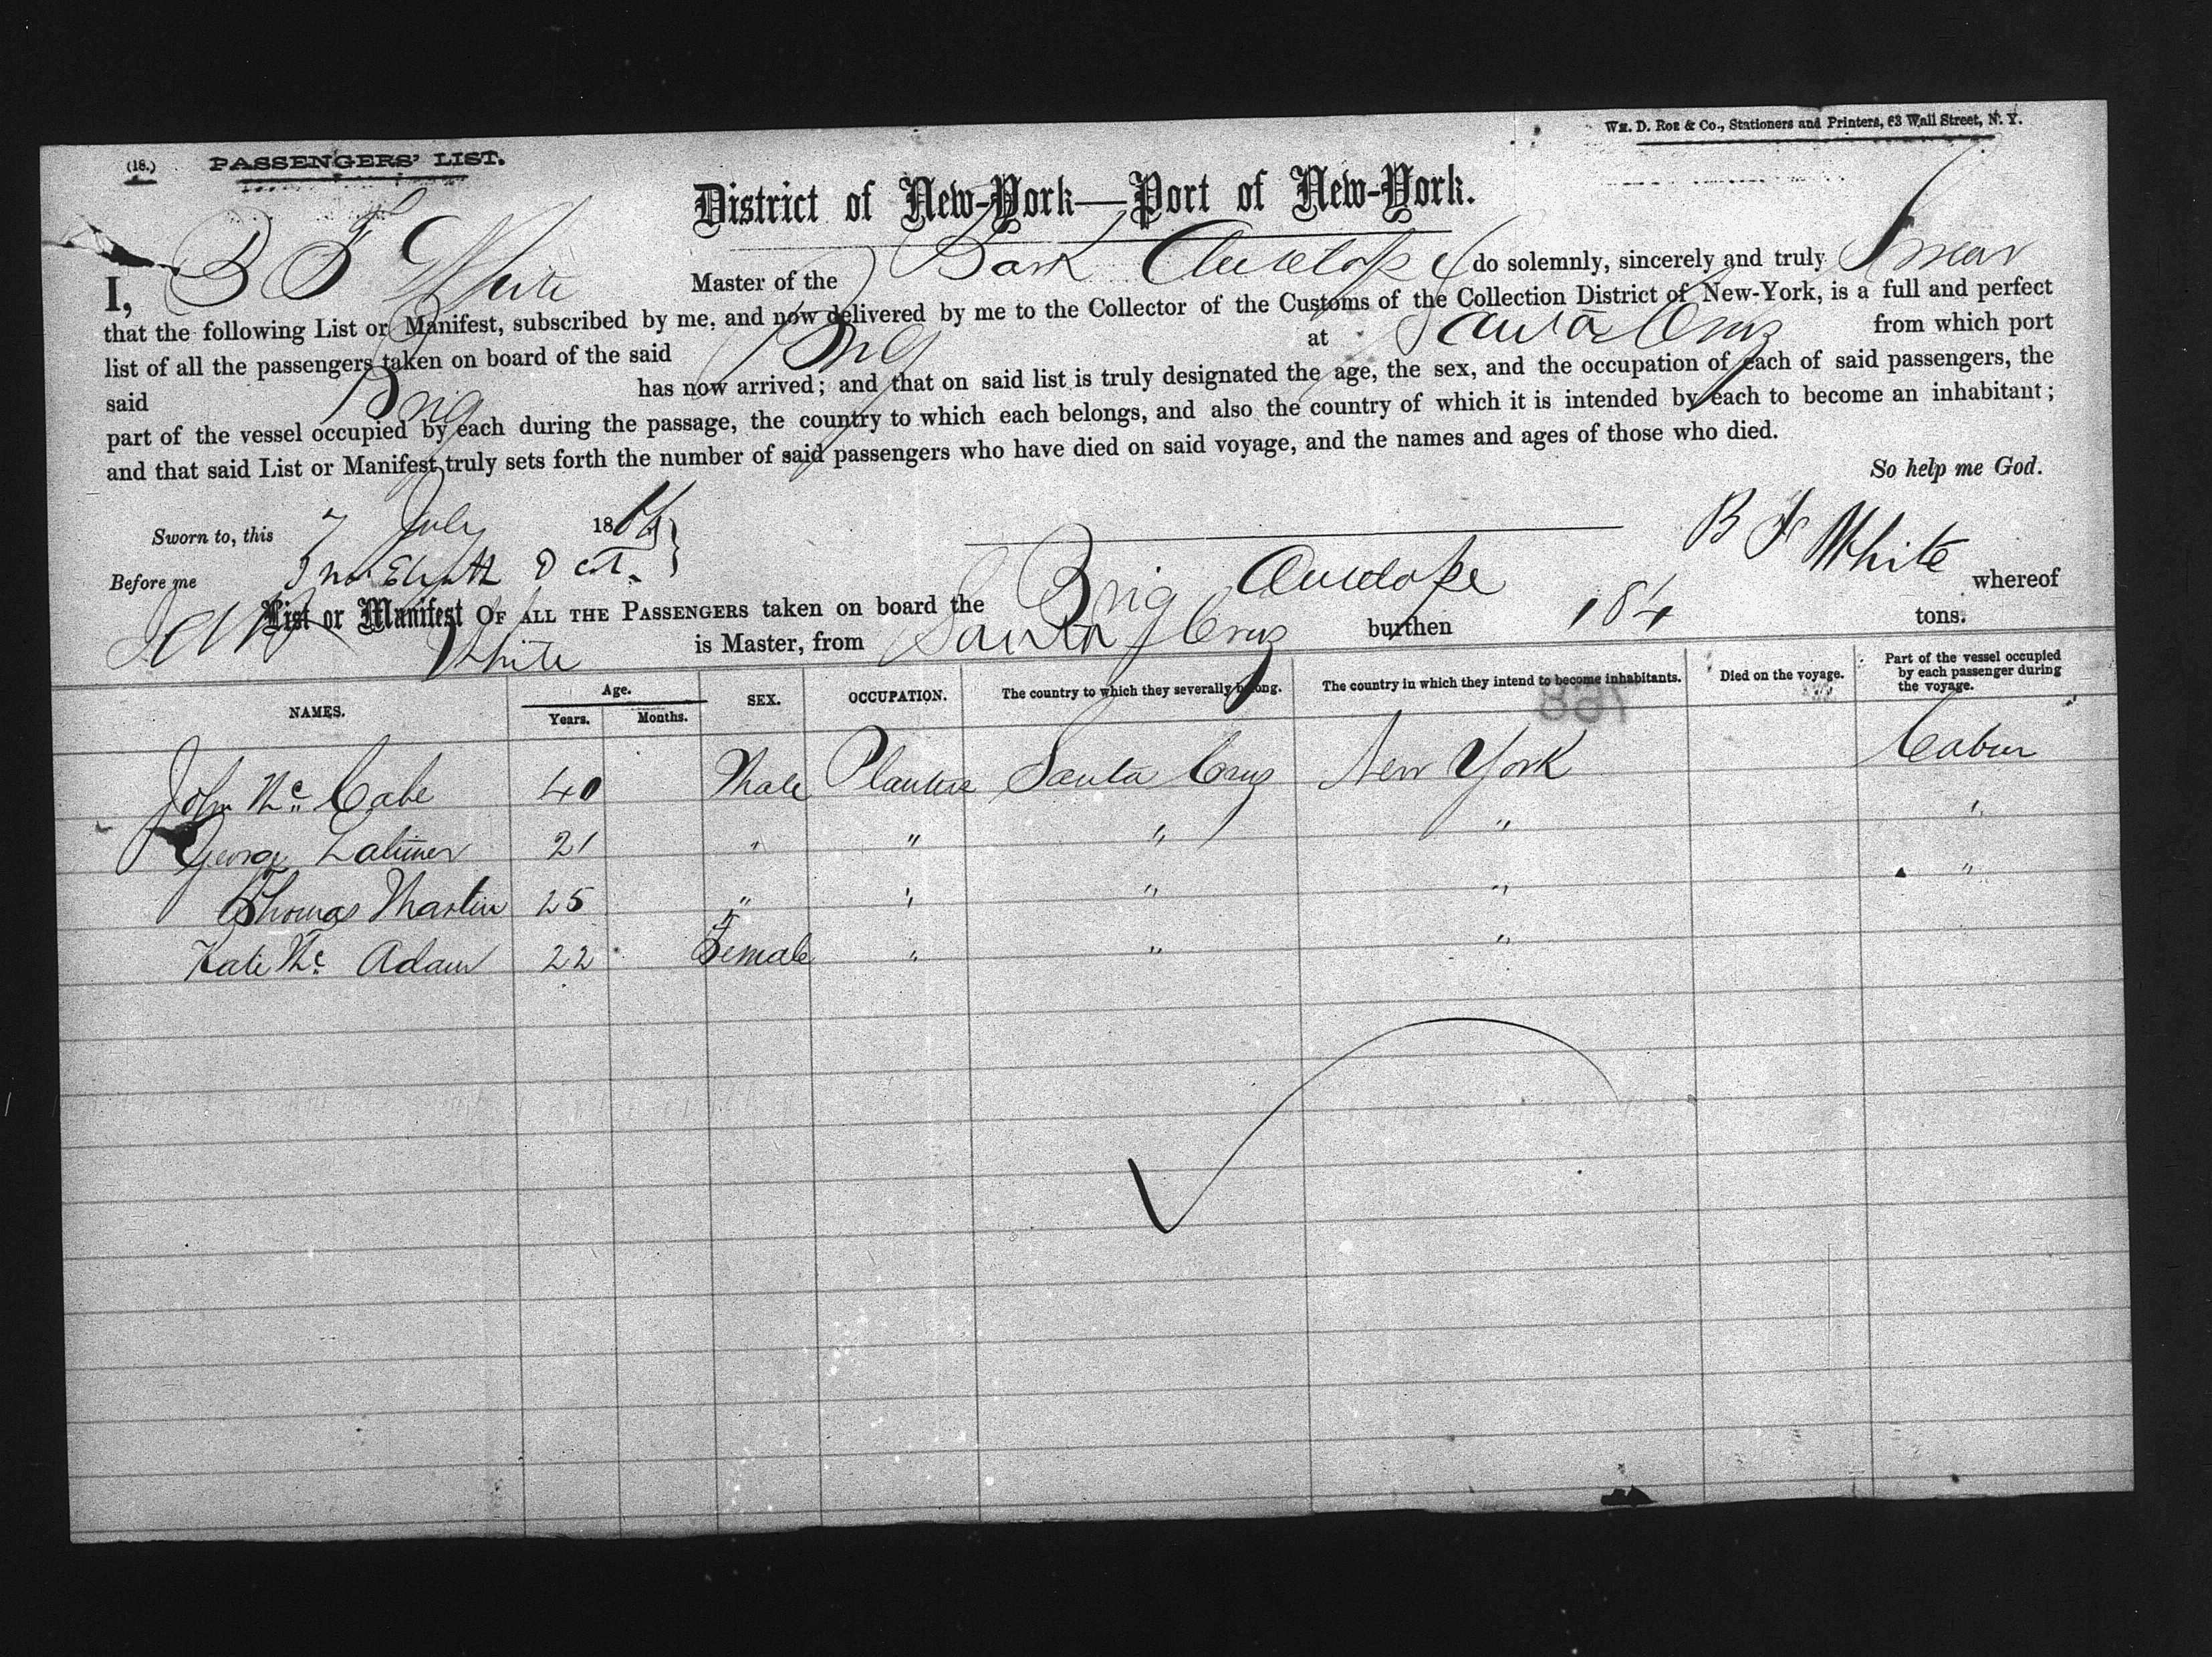 (18.) PASSENGERS' LIST.
Wm. D. Roe & Co., Stationers and Printers, 63 Wall Street, N. Y.
District of New-York—Port of New-York.
I, B F White Master of the Bark Antelope do solemnly, sincerely and truly Swear
that the following List or Manifest, subscribed by me, and now delivered by me to the Collector of the Customs of the Collection District of New-York, is a full and perfect
list of all the passengers taken on board of the said Brig at Santa Cruz from which port
said Brig has now arrived; and that on said list is truly designated the age, the sex, and the occupation of each of said passengers, the
part of the vessel occupied by each during the passage, the country to which each belongs, and also the country of which it is intended by each to become an inhabitant;
and that said List or Manifest truly sets forth the number of said passengers who have died on said voyage, and the names and ages of those who died.
So help me God.
Sworn to, this 7 July 186
B F White
Before me
List or Manifest OF ALL THE PASSENGERS taken on board the Brig Antelope whereof
White is Master, from Santa Cruz burthen 184 tons.
NAMES. Age. Years. Months. SEX. OCCUPATION. The country to which they severally belong. The country in which they intend to become inhabitants. Died on the voyage. Part of the vessel occupied by each passenger during the voyage.
John Mc Cabe 40 Male Planters Santa Cruz New York Cabin
George Latimer 21 " " " " "
Thomas Martin 25 " " " " "
Kate Mc Adam 22 Female " " "